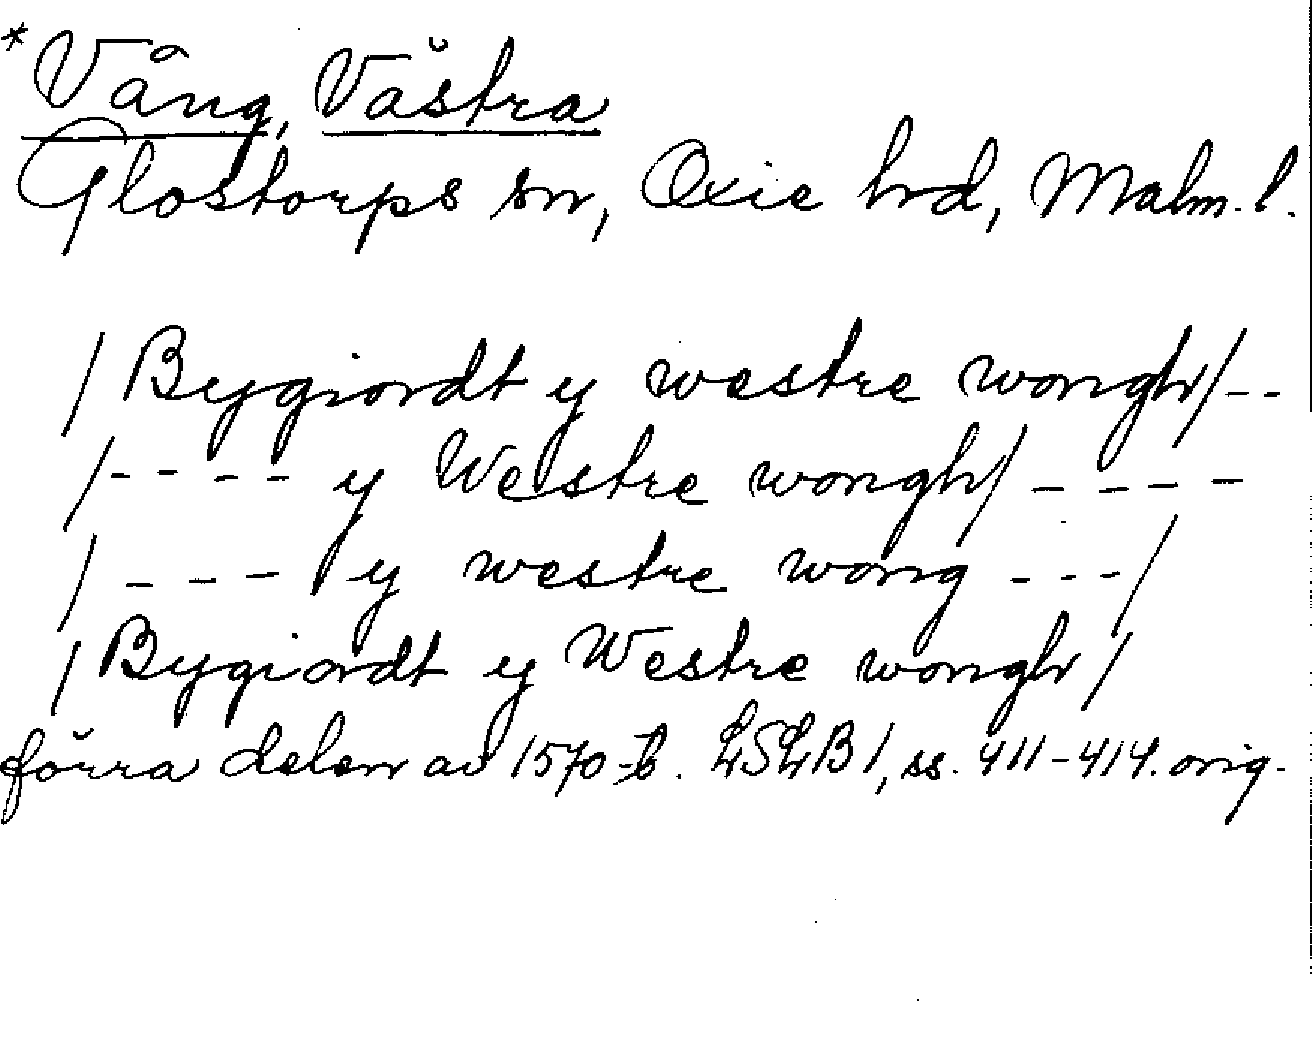 *Vång, Västra
Glostorps sn, Oxie hrd, Malm. l.
/Bygiordt y westre wongh/--
/---- y Westre wongh/----
/--- y westre wong ---/
/Bygiordt y Westre wongh/
förra delen av 1570-t. LSLB1, ss. 411-414. orig.